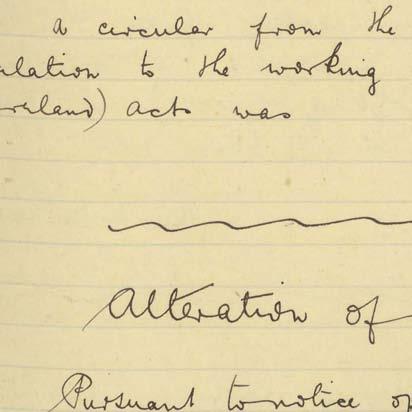 a circular from the
ulation to the working
reland) acts was
Alteration of
Pursuant to notice of